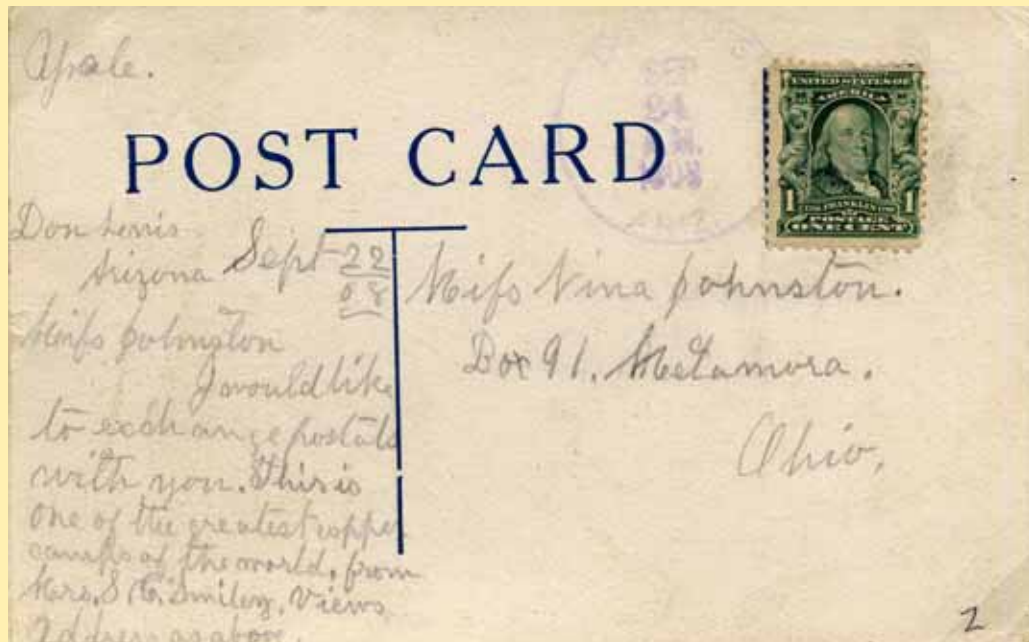 POST CARD
UNITED STATES OF
AMERICA
1 FRANKLIN 1
POSTAGE
ONE CENT
Arizona Sept 22
08
Miss Johnston
I would like
to exchange postals
with you. This is
one of the greatest copper
camps of the world, from
Mrs. S. C. Smiley, Views
address as above.
Miss Nina Johnston.
Box 91. Metamora.
Ohio,
2